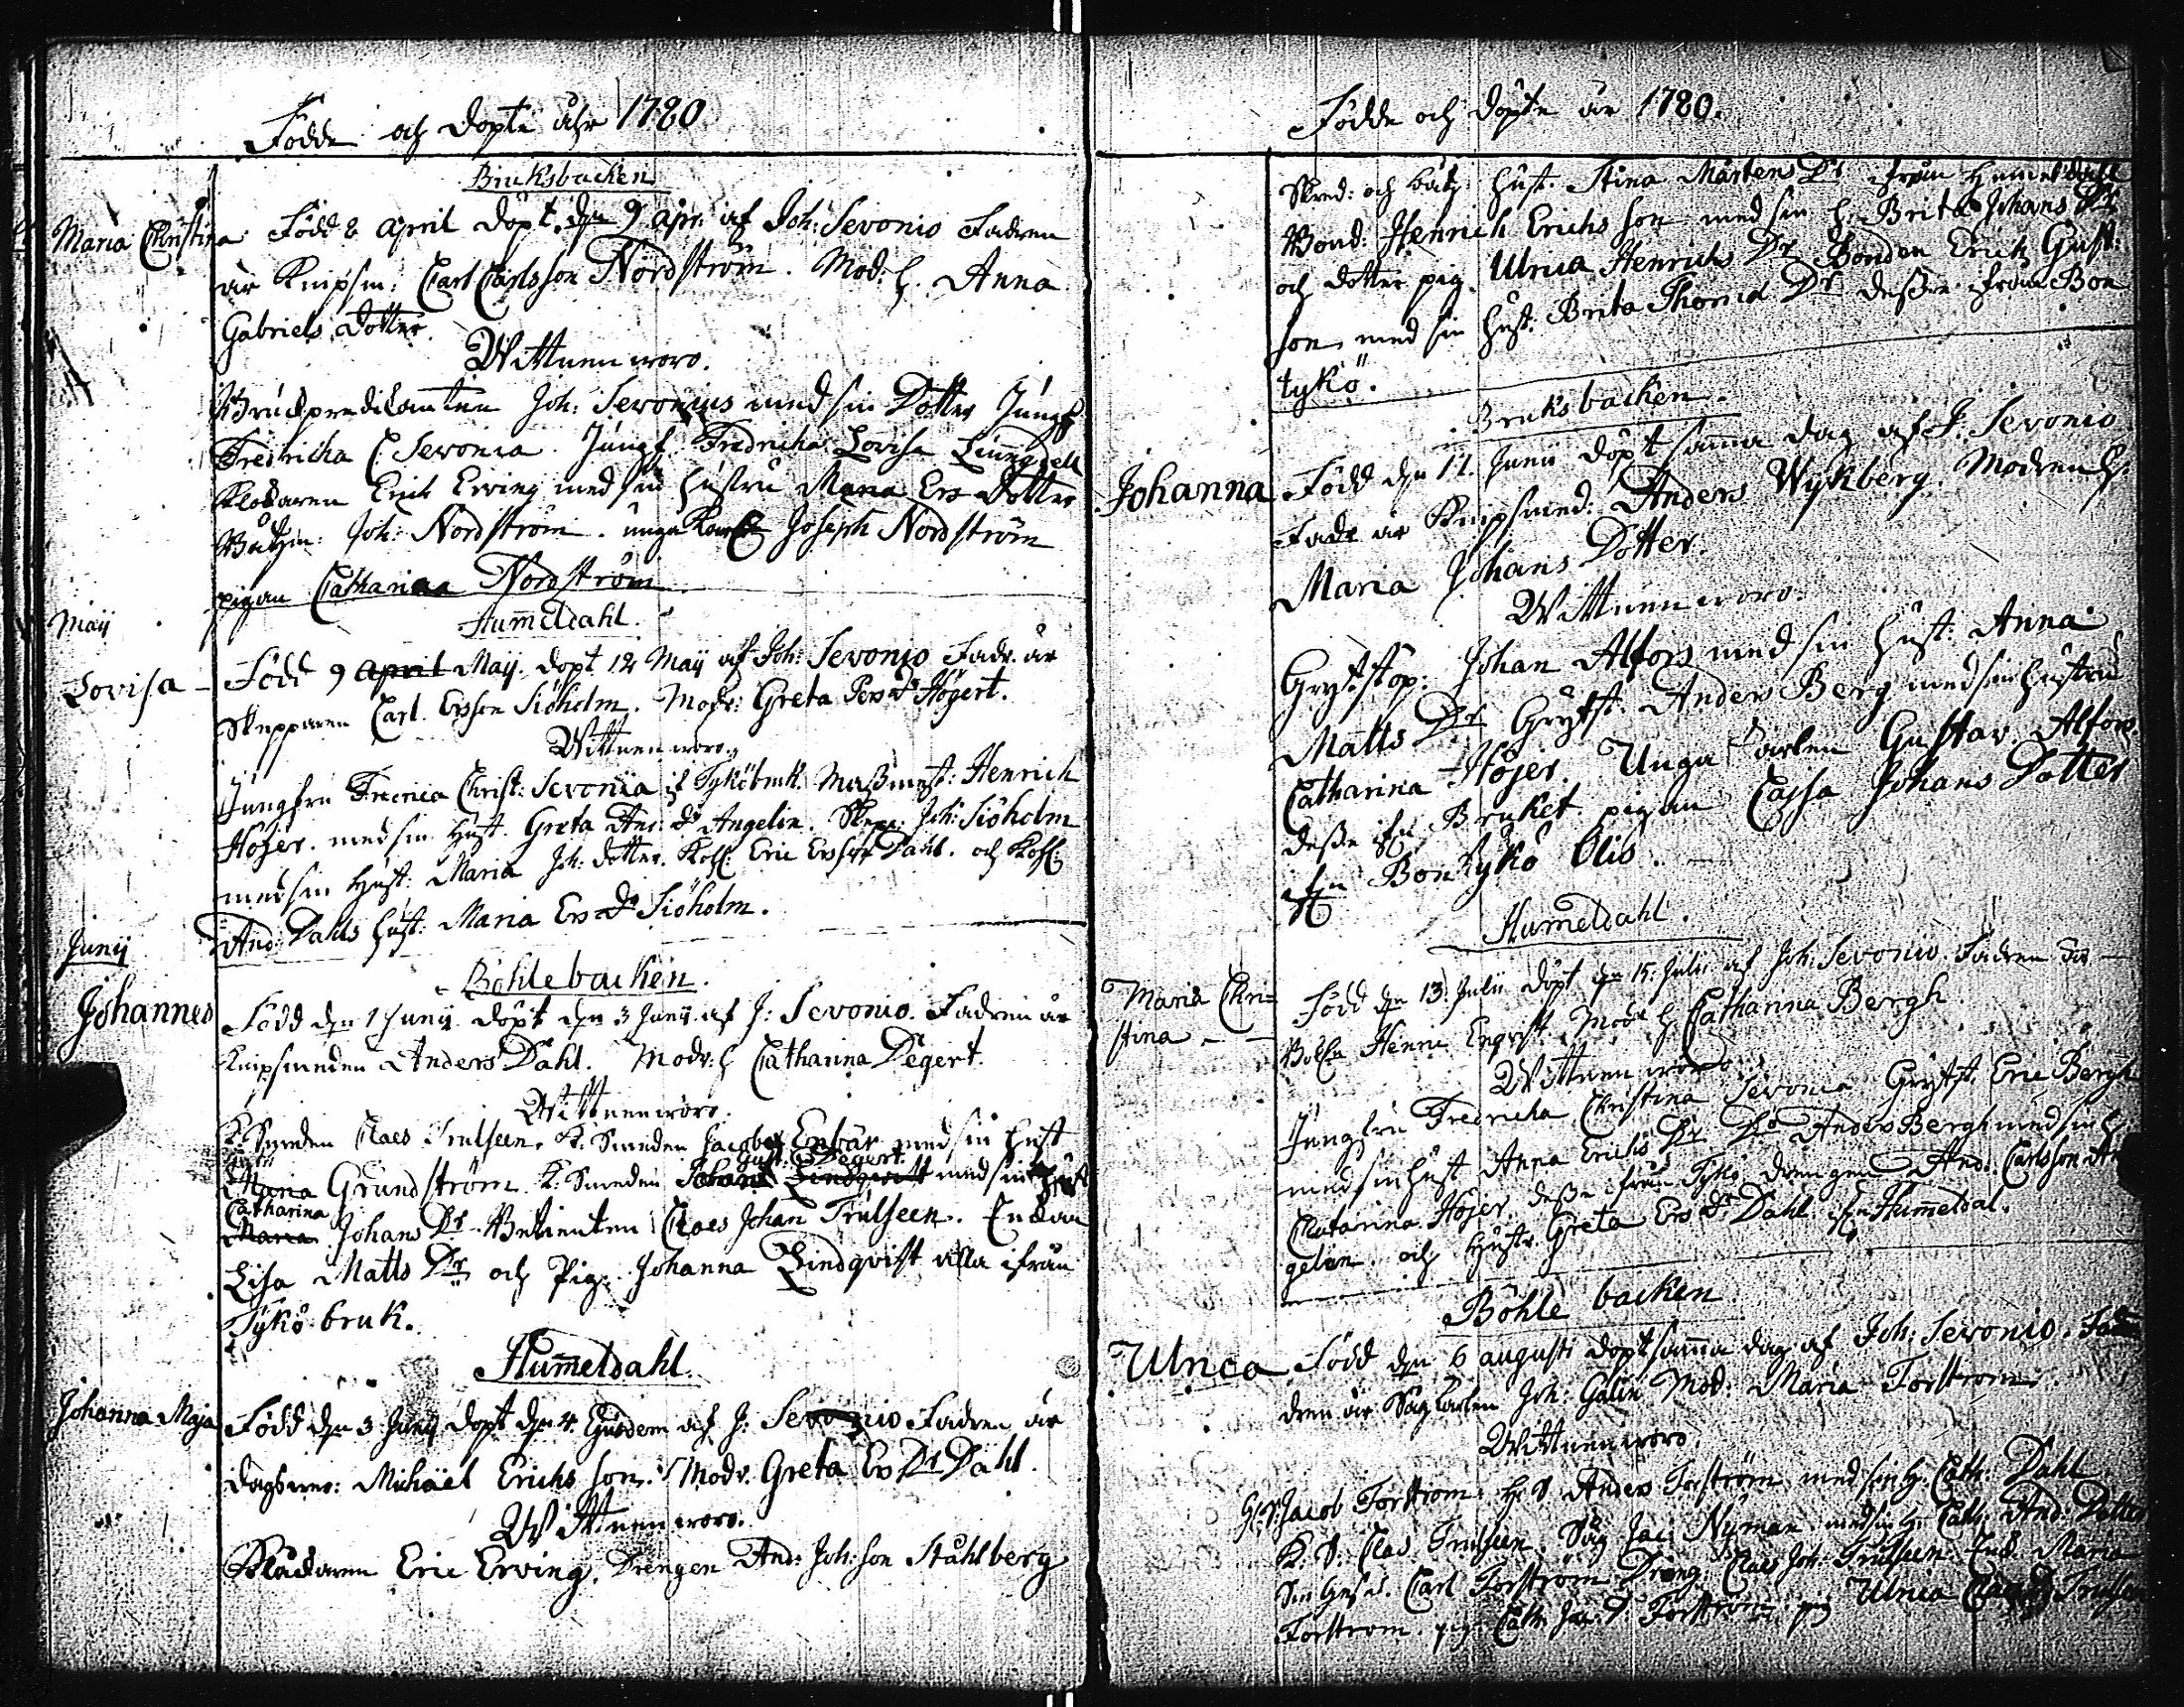 Födde och döpte åhr 1780
Bruksbacken
Maria Christina Född 8 april döpt den 9 apr: af Joh: Sevonio Fadren
är Knipsm: Carl Carlsson Nordström. Mod: h. Anna
Gabriels Dotter.
Wittnen woro.
Bruckspredikanten Joh: Sevonius med sin Dotter Jungf:
Fredricha C Sevonia. Jungf: Fredricha Lovisa
Klockaren Erich Erving med sin hustru Maria Ers Dotter
Joh: Nordström. unga Karl Joseph Nordström
pigan Catharina Nordström
Hum̄eldahl.
Maij
Lovisa Född 9 april Maij. döpt 12 Maij af Joh: Sevonio Fadr. är
Skepparen Carl Ersson Siöholm. Modr: Greta Pers Dr Högert.
Wittnen woro.
Jungfru Fredrica Christ: Sevonia if Tyköbruk. Maßmest: Henrich
Höjer. med sin Hust. Greta And: Dr Angelin. Skepp: Joh: Siöholm
med sin Hust: Maria Joh: dotter. Kohl: Eric Ersson Dahl. och Kohl:
And: Dahls hust: Maria Ers Dr Siöholm.
Junij
Böhlebacken.
Johannes Född den 1 Junij döpt den 3 Junij af J: Sevonio. Fadren är
Knipsmeden Anders Dahl. Modr: h Catharina Degert.
Wittnen woro.
K: Smeden Claes Trulseen. K: Smeden Jacob Enbär med sin hust
Maria Grundström. K: Smeden Johan Lindqvist med sin hust
Gust: Degert
Catharina
Maria Johans Dr Betienten Claes Johan Trulseen. Enckan
Lisa Matts Dr och Pig. Johanna Lindqvist alla ifrån
Tykö bruk.
Hum̄eldahl.
Johanna Maja Född den 3 Junij döpt den 4 Ejusdem af J: Sevonio Fadren är
dagsver: Michäel Erichs son. Modr. Greta Ers Dr Dahl.
Wittnen woro.
Klåckaren Eric Erving. Drengen And: Joh: son Stahlberg
Födde och döpte år 1780.
Skred: och hust. Stina Mårtens Dr ifrån Hum̄eldahl
Bond: Henrich Erichs son med sin h: Brita Johans Dr
och dotter pig. Ulrica Henrichs Dr Bonden Erich Gust:
son, med sin hust. Brita Thomæ Dr deßa ifrån Bon
tykö.
Bruksbacken.
Johanna Född den 11. Junii döpt sam̄a dag af J. Sevonio
Fadr är Knipsmed: Anders Wykberg. Modren h:
Maria Johans Dotter.
Wittnen woro.
Grytstöp: Johan Alfors med sin hust: Anna
Matts Dr Grytst. Anders Berg med sin hustru
Catharina Höjer. Unga karlen Gustav Alfors.
deße ifrån Bruket. pigan Cajsa Johans Dotter
ifrån Bontykö Olis.
Hum̄eldahl.
Maria Christina Född den 13. Julii döpt den 15. Julii af Joh: Sevonio. Fadren är
Henric Engvist. Modr h Catharina Bergh.
Wittnen woro.
Jungfru Fredricha Christina Sevonia Grytst. Eric Bergh
med sin hust Anna Erichs Dr Do Anders Bergh med sin h.
Chatarina Höjer. deße ifrån Tykö drengen And: Carlsson An
gelin. och Hustr. Greta Ers Dr Dahl ifrån Hum̄eldal.
Böhle backen
Ulrica Född den 6 augusti döpt sam̄a dag af Joh: Sevonio. Fa
dren är Sågkarlen Joh: Galin Mod: Maria Forstrom.
Wittnen woro.
G: S: Jacob Forstrom. H: S Anders Forström med sin h: Cath: Dahl
K. S: Clas Trulseen. Såg Jac: Nyman med sin h: Cath: And: Dotter
Carl Forström Dräng: Claes Joh: Trulseen. Enk. Maria
Forstrom. pig. Cath: Jac: D: Forstrom pig Ulrica Claes D Trulseen